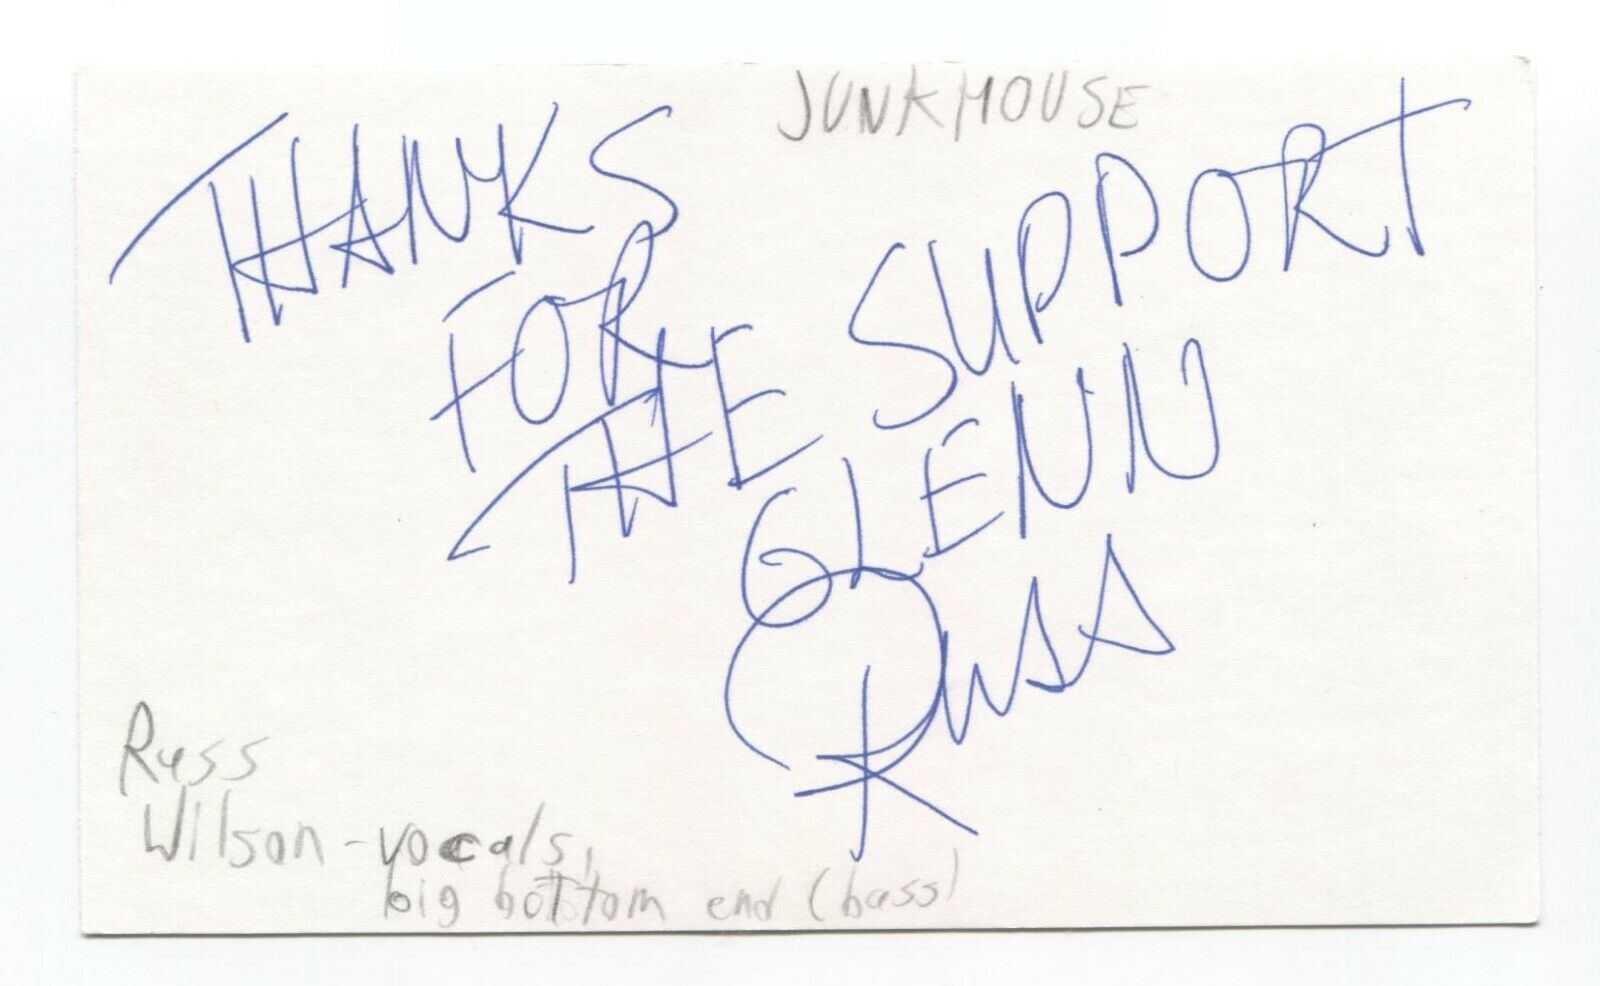 JUNKHOUSE
THANKS
FOR
THE SUPPORT
GLENN
Russ
Russ
Wilson - vocals,
big bottom end (bass)